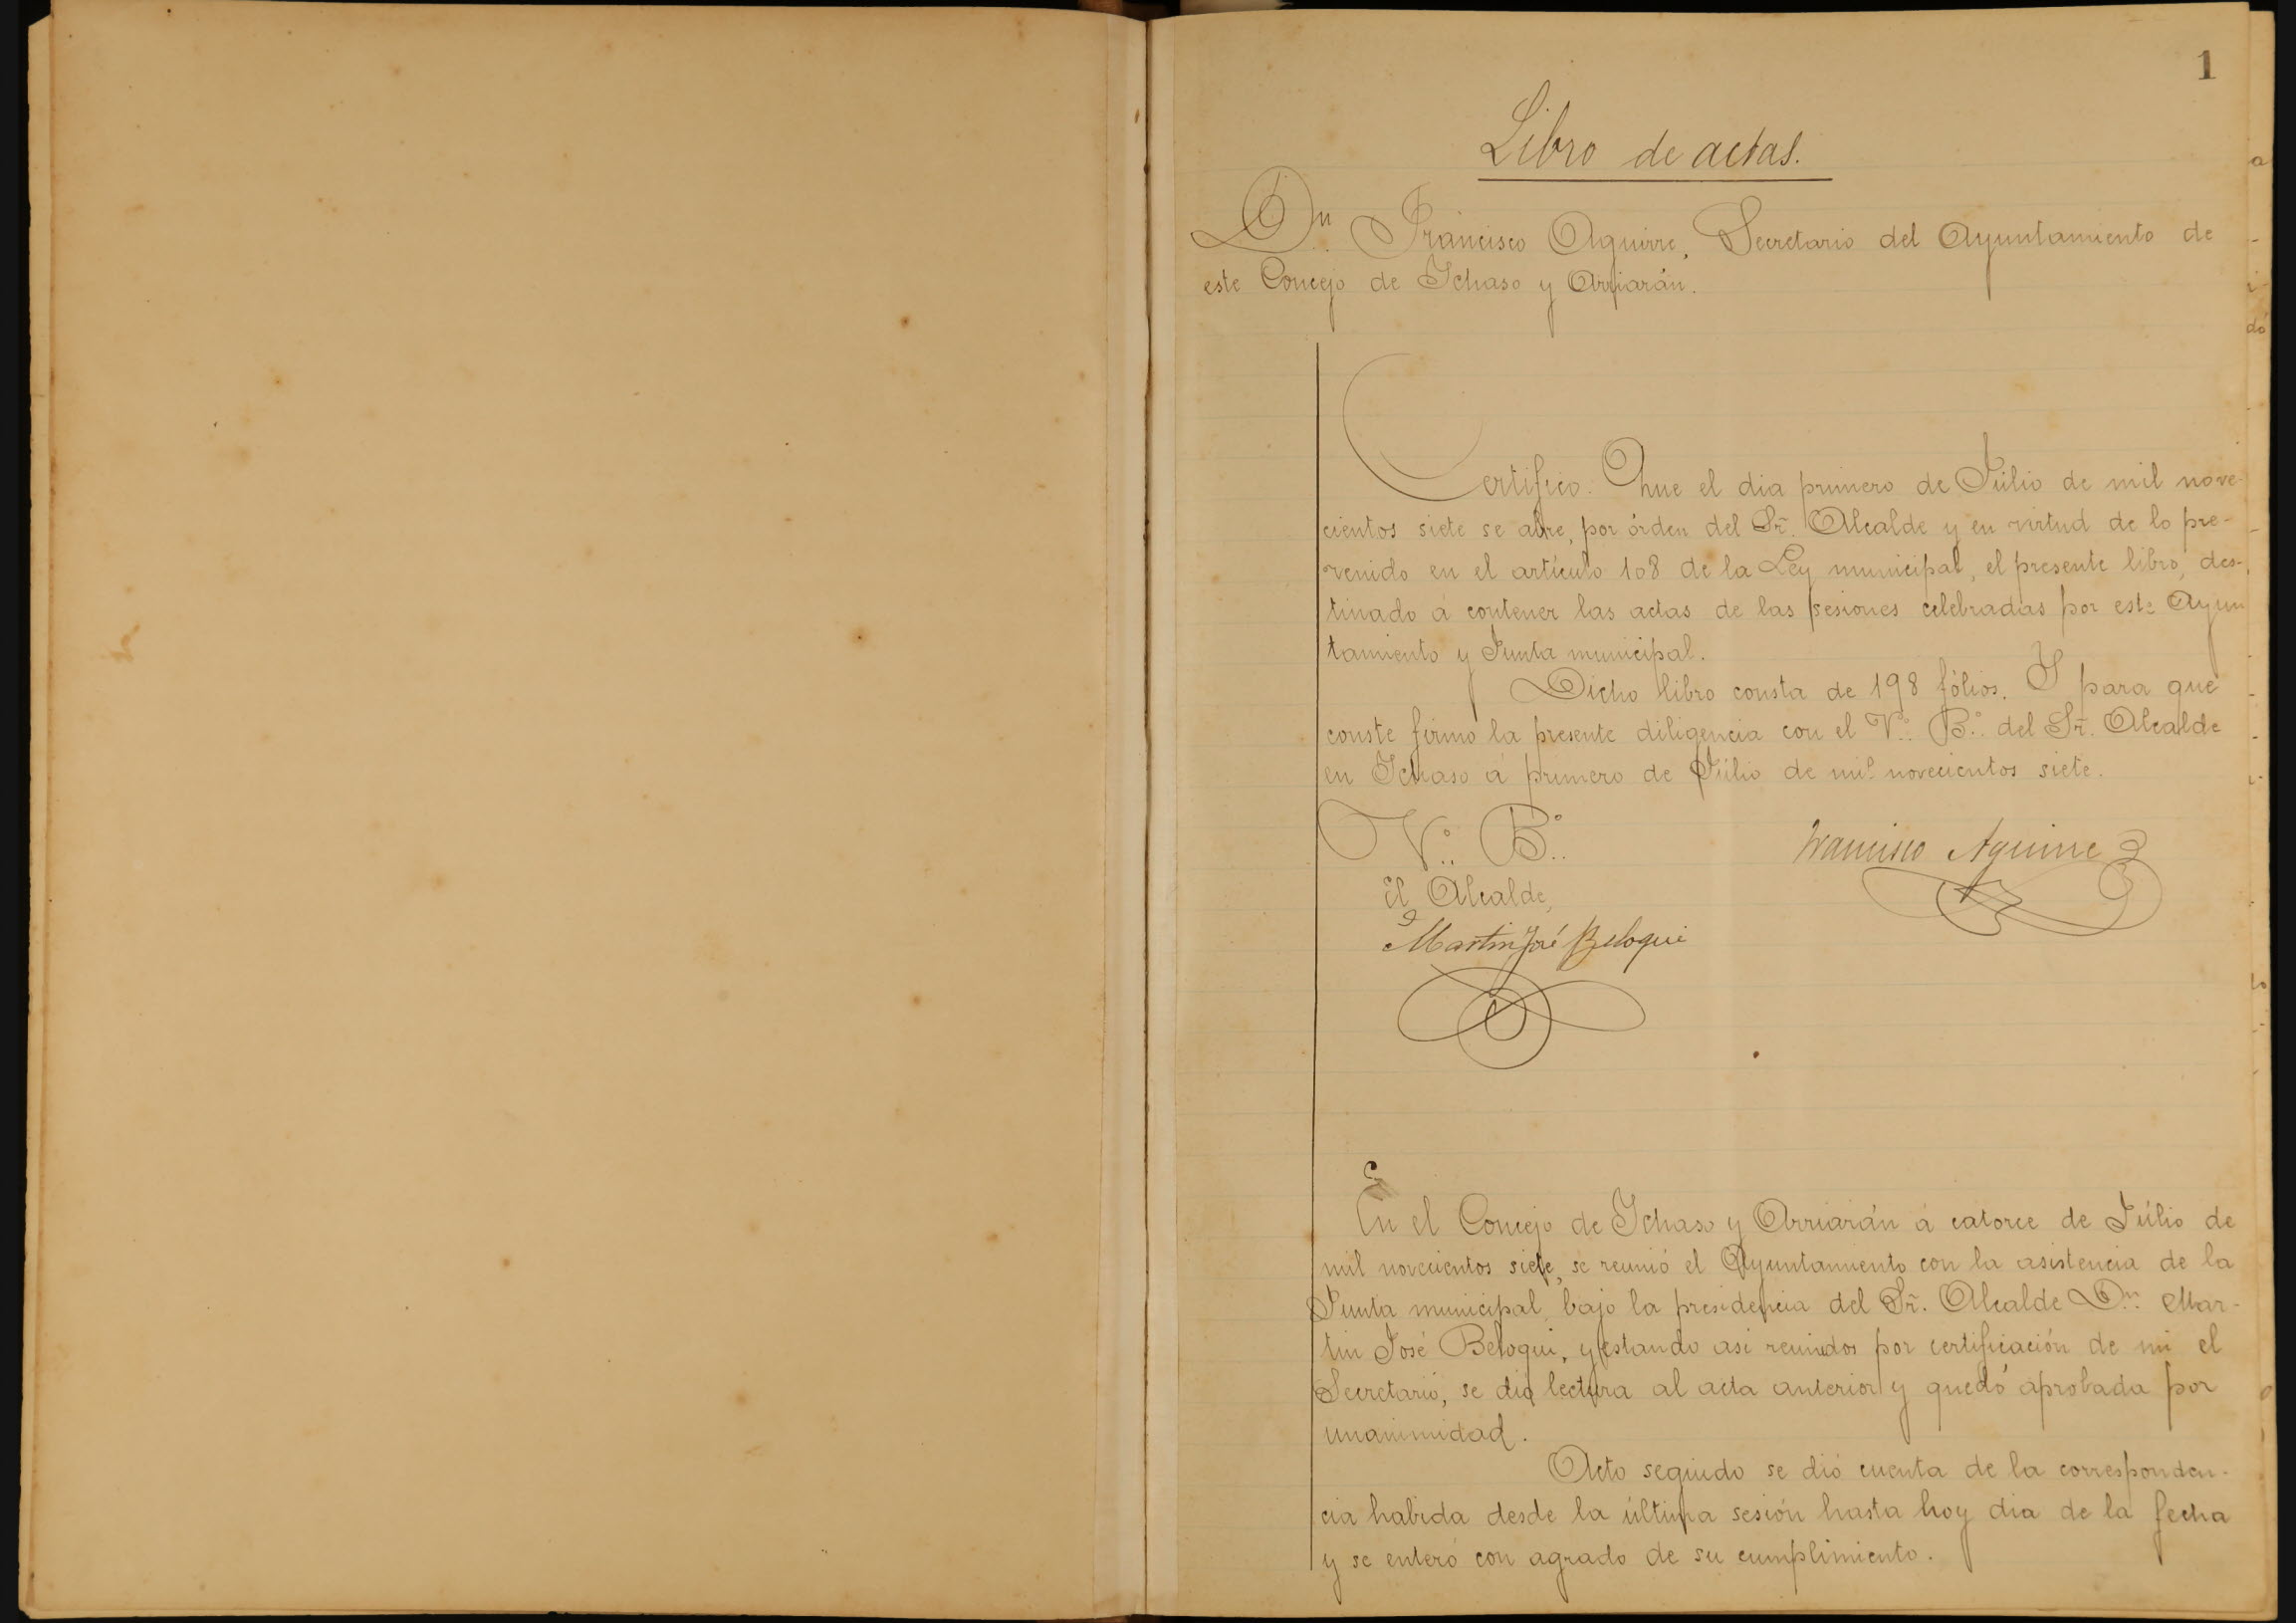 1
Libro de actas.
Dn. Francisco Aguirre, Secretario del Ayuntamiento de
este Concejo de Ichaso y Arriarán.
Certifico. Que el dia primero de Júlio de mil nove-
cientos siete se abre, por órden del Sr. Alcalde y en virtud de lo pre-
venido en el artículo 108 de la Ley municipal, el presente libro, des-
tinado á contener las actas de las sesiones celebradas por este Ayun
tamiento y Junta municipal.
Dicho libro consta de 198 fólios. Y para que
conste firmo la presente diligencia con el V.º B.º del Sr. Alcalde
en Ichaso á primero de Júlio de mil novecientos siete.
V.º B.º
Francisco Aguirre
El Alcalde,
Martin José Beloqui
En el Concejo de Ichaso y Arriarán á catorce de Júlio de
mil novecientos siete, se reunió el Ayuntamiento con la asistencia de la
Junta municipal, bajo la presidencia del Sr. Alcalde Dn. Mar-
tin José Beloqui, y estando asi reunidos por certificación de mi el
Secretario, se dió lectura al acta anterior y quedó aprobada por
unanimidad.
Acto seguido se dió cuenta de la corresponden-
cia habida desde la última sesión hasta hoy dia de la fecha
y se enteró con agrado de su cumplimiento.